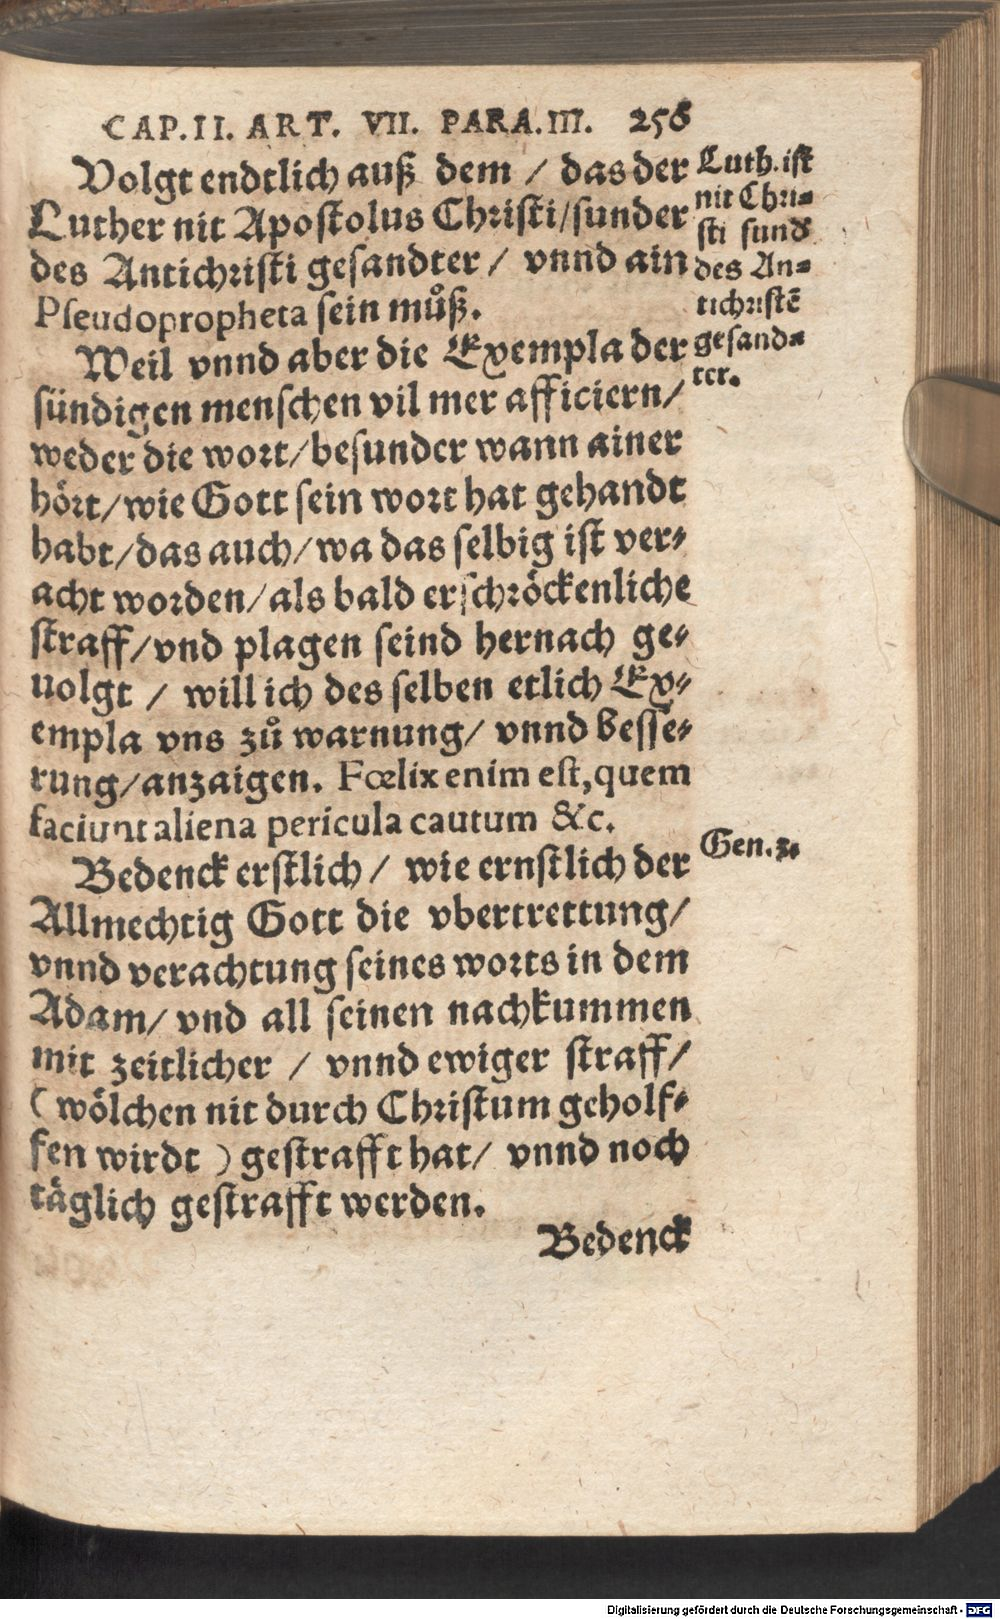 CAP.II. ART. VII. PARA.III. 256
Volgt endtlich auß dem / das der
Luther nit Apostolus Christi/sunder
des Antichristi gesandter / vnnd ain
Pseudopropheta sein můß.
Luth. ist
nit Chri-
sti sund
des An-
tichristē
gesand-
ter.
Weil vnnd aber die Exempla der
sündigen menschen vil mer afficiern/
weder die wort/besunder wann ainer
hört/wie Gott sein wort hat gehandt
habt/das auch/wa das selbig ist ver-
acht worden/als bald erschröckenliche
straff/vnd plagen seind hernach ge-
uolgt / will ich des selben etlich Ex-
empla vns zů warnung/ vnnd besse-
rung/anzaigen. Fœlix enim est,quem
faciunt aliena pericula cautum &c.
Bedenck erstlich / wie ernstlich der
Allmechtig Gott die vbertrettung/
vnnd verachtung seines worts in dem
Adam/ vnd all seinen nachkummen
mit zeitlicher / vnnd ewiger straff/
( wölchen nit durch Christum geholf-
fen wirdt ) gestrafft hat/ vnnd noch
täglich gestrafft werden.
Gen. 2.
Bedenck
Digitalisierung gefördert durch die Deutsche Forschungsgemeinschaft - DFG